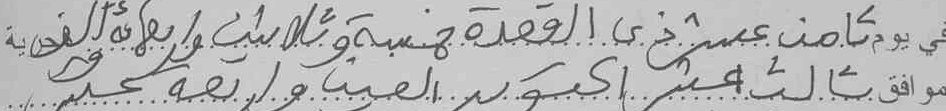 في يوم ثامن عشر ذى القعدة خمسة وثلاثين واربعمائة الف هجرية
موافق ثالث عشر اكتوبر الفين واربعة عشر